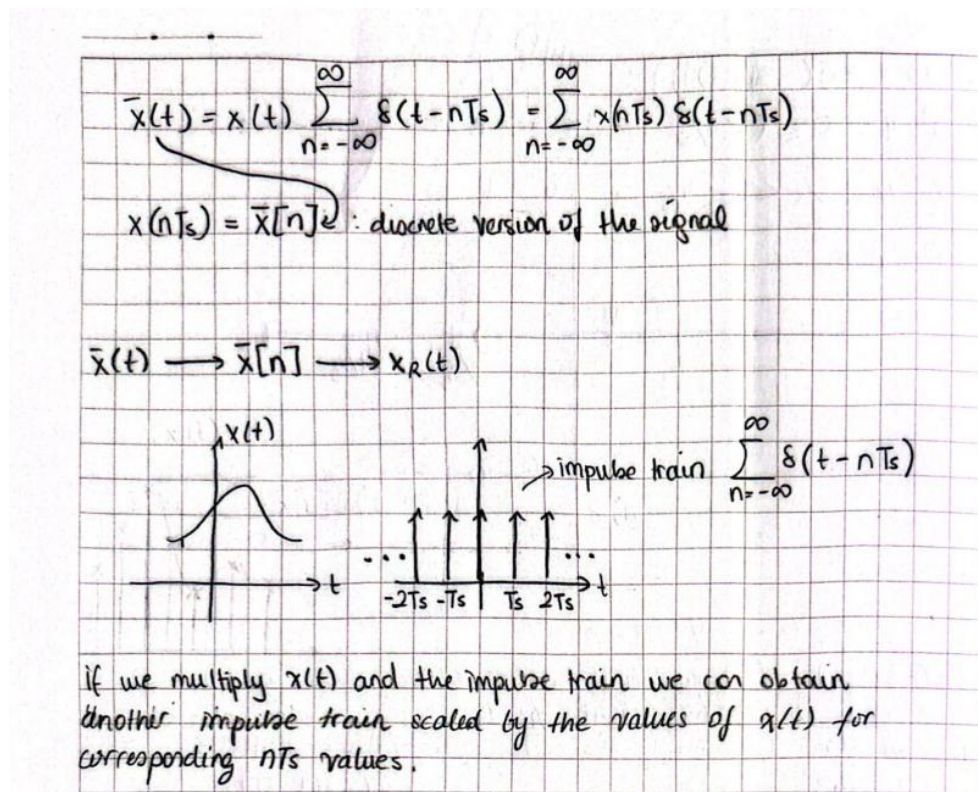 x̄(t) = x(t) ∞ ∑ n=-∞ δ(t-nTs) = ∞ ∑ n=-∞ x(nTs) δ(t-nTs)
x(nTs) = x̄[n] : discrete version of the signal
x̄(t) → x̄[n] → xR(t)
x(t)
impulse train ∞ ∑ n=-∞ δ(t-nTs)
... ...
t
-2Ts -Ts Ts 2Ts t
if we multiply x(t) and the impulse train we can obtain
another impulse train scaled by the values of x(t) for
corresponding nTs values.